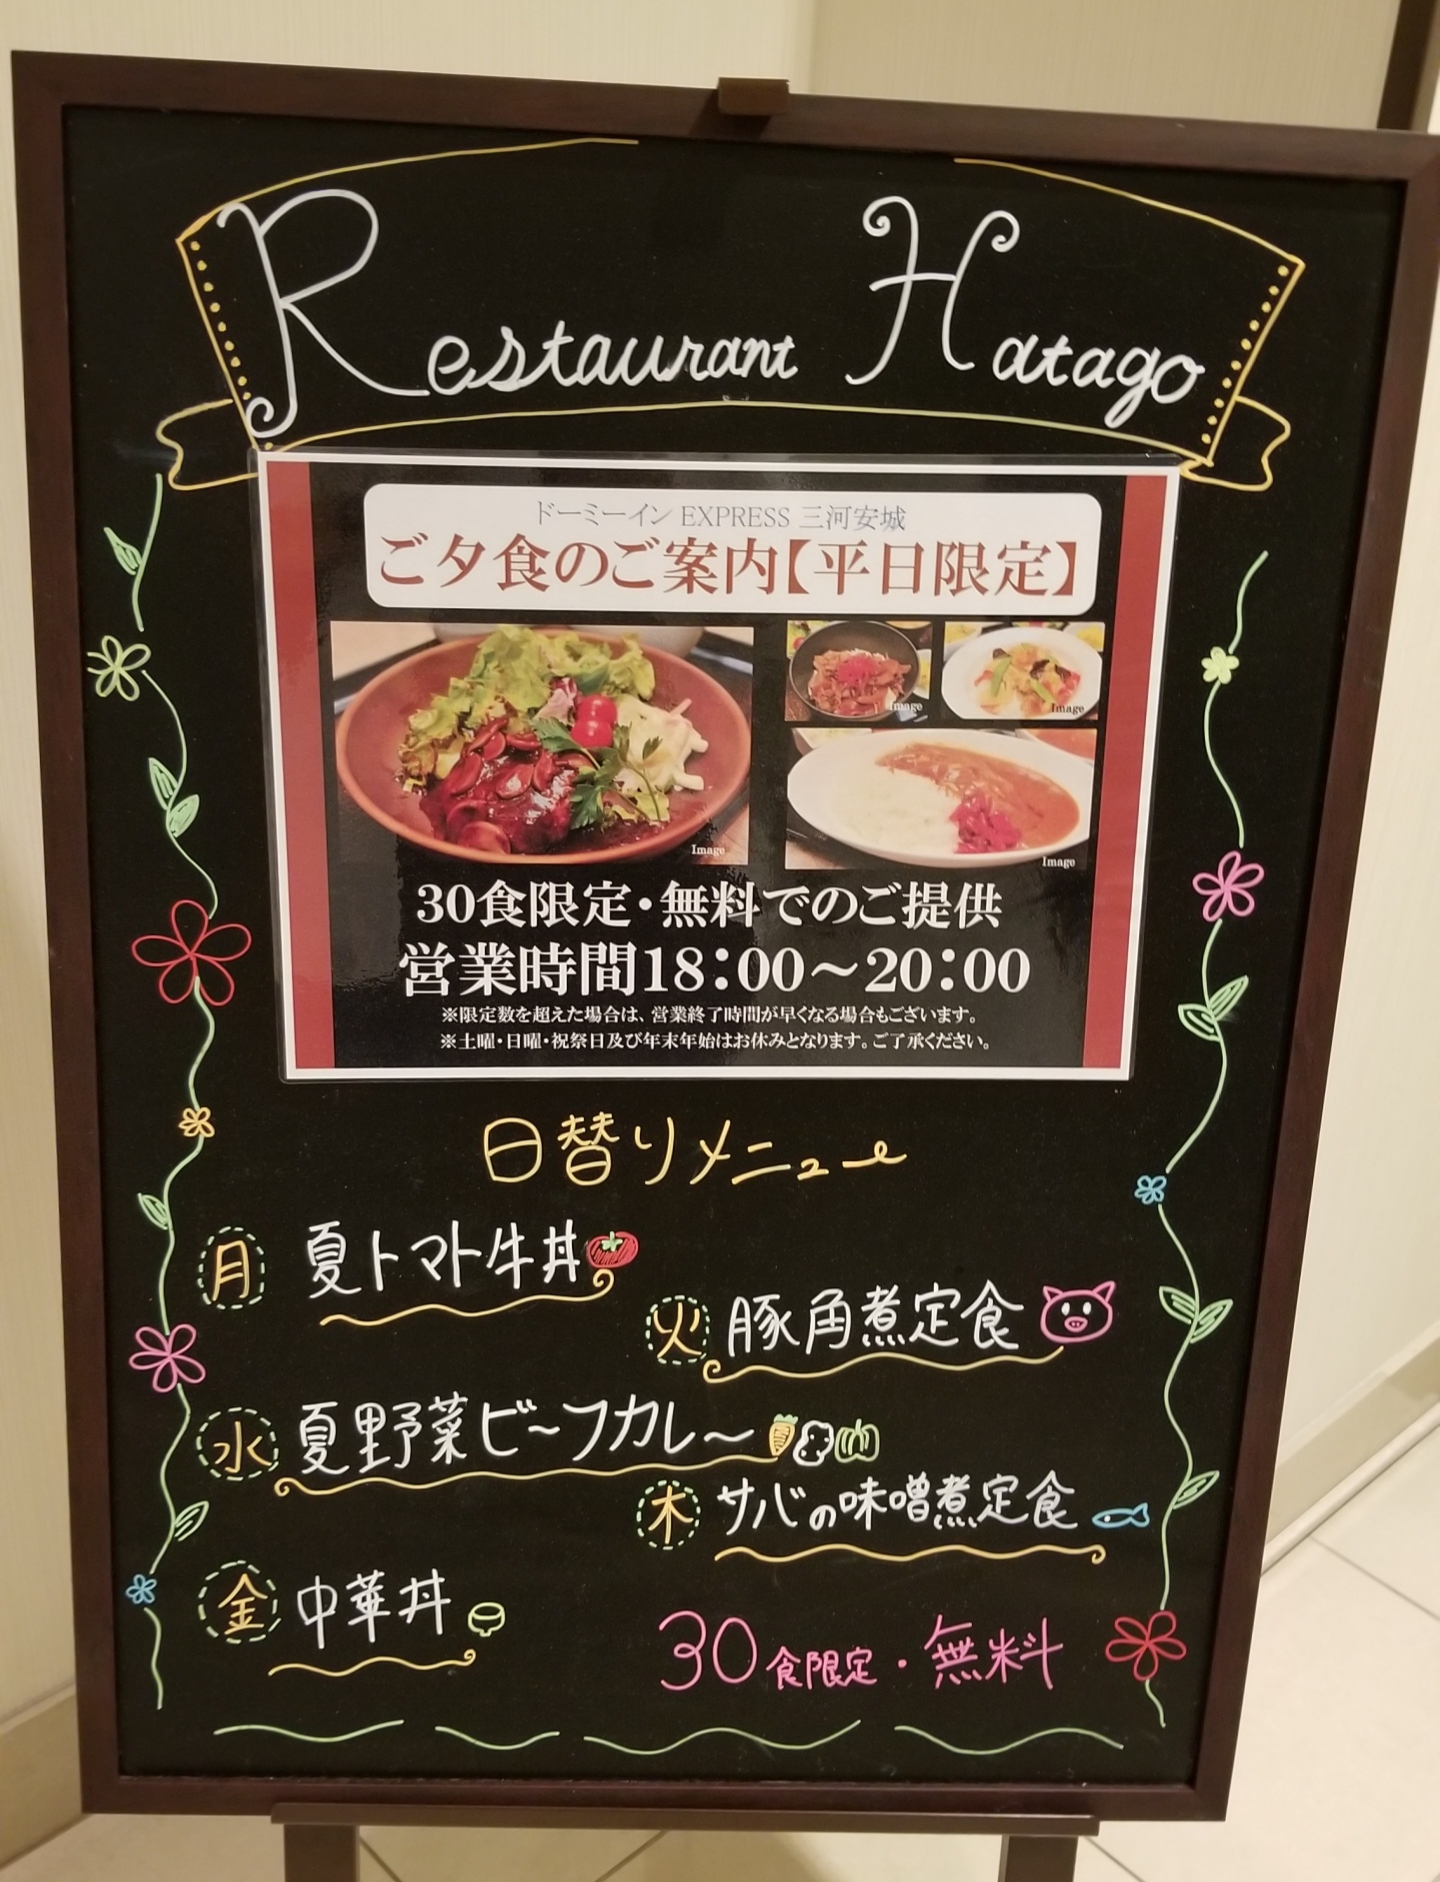 Restaurant Hatago
ドーミーイン EXPRESS 三河安城
ご夕食のご案内【平日限定】
Image
Image
Image
Image
30食限定・無料でのご提供
営業時間18:00～20:00
※限定数を超えた場合は、営業終了時間が早くなる場合もございます。
※土曜・日曜・祝祭日及び年末年始はお休みとなります。ご了承ください。
日替りメニュー
月 夏トマト牛丼
火 豚角煮定食
水 夏野菜ビーフカレー
木 サバの味噌煮定食
金 中華丼
30食限定・無料